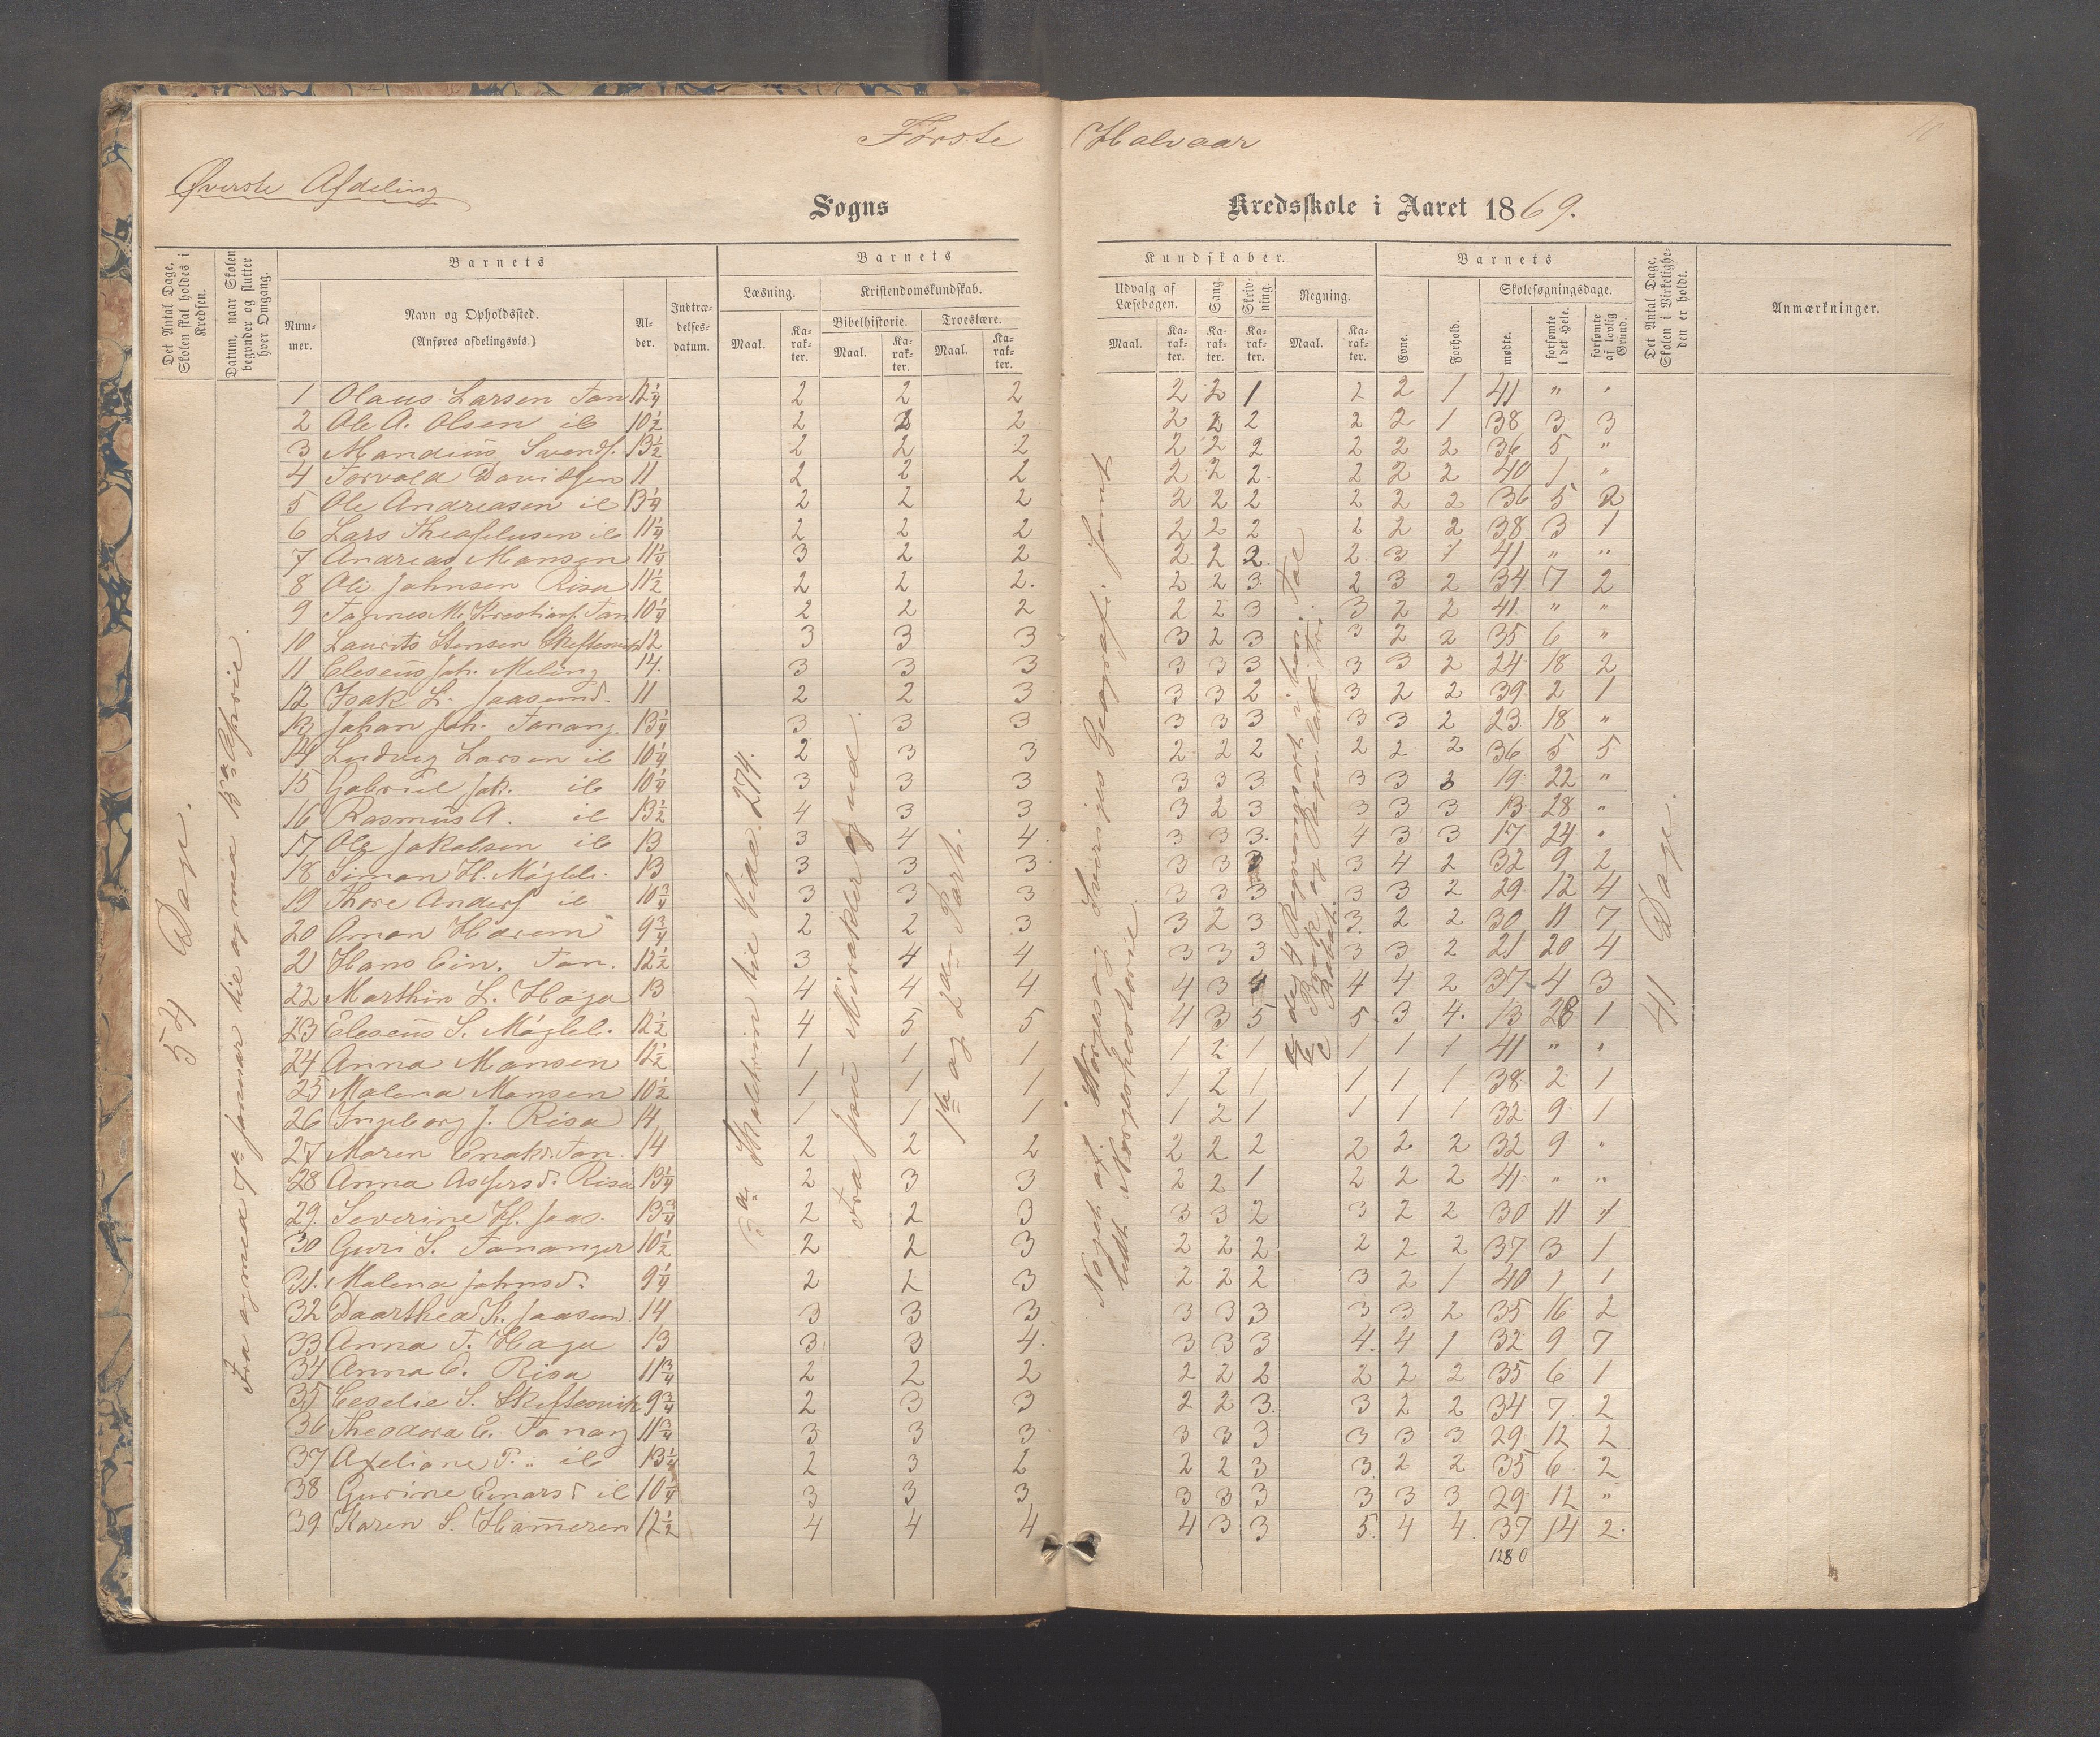 Første Halvaar
10
Øverste Afdeling
Sogns Kredsskole i Aaret 1869.
Det Antal Dage, Skolen skal holdes i Kredsen.
Datum, naar Skolen begynder og slutter hver Omgang.
Barnets
Nummer.
Navn og Opholdssted.
(Anføres afdelingsvis.)
Alder.
Indtrædelsesdatum.
Barnets Kundskaber.
Læsning.
Kristendomskundskab.
Bibelhistorie.
Troeslære.
Udvalg af Læsebogen.
Sang.
Skrivning.
Regning.
Maal.
Karakter.
Barnets
Evne.
Forhold.
Skolesøgningsdage.
mødte.
forsømte i det Hele.
forsømte af lovlig Grund.
Det Antal Dage, Skolen i Virkeligheden er holdt.
Anmærkninger.
54 Dage.
Fra og med 7de Januar til og med 13de Aprie.
til Side 274.
Fra Jesu Mirakler og ud.
1ste og 2den Part.
Noget af Norges og Sveriges Geografi samt
lidt Norgeshistorie.
de 4 Regningsart i hele Tal
Brøk og Reguladetri
41 Dage.
1 Olaus Larsen Tan 12 1/4 2 2 2 2 2 1 2 2 1 41 " "
2 Ole A. Olsen ib 10 1/2 2 2 2 2 2 2 2 2 1 38 3 3
3 Mandius Svends. 13 1/2 2 2 2 2 2 2 2 2 2 36 5 "
4 Torvald Davidsen 11 2 2 2 2 2 2 2 2 2 40 1 "
5 Ole Andreasen ib 13 1/4 2 2 2 2 2 2 2 2 2 36 5 2
6 Lars Theofelusen ib 11 1/4 2 2 2 2 2 2 2 2 2 38 3 1
7 Andreas Monsen 11 1/4 3 2 2 2 2 2 2 3 1 41 " "
8 Ole Johnsen Risa 11 1/2 2 2 2. 2 2 3 2 3 2 34 7 2
9 Tønnes M. Krestians. Tan 10 1/4 2 2 2 2 2 3 3 2 2 41 " "
10 Laurits Stensen Skeftesvik 12 3 3 3 3 2 3 3 2 2 35 6 "
11 Eleseus Joh. Meling 14. 3 3 3 3 3 3 3 3 2 24 18 2
12 Isak L. Jaasund. 11 2 2 3 3 3 2 3 2 2 39 2 1
13 Johan Joh. Tanang. 13 1/4 3 3 3 3 3 3 3 3 2 23 18 "
14 Ludvig Larsen ib 10 1/4 2 3 3 2 2 2 2 2 2 36 5 5
15 Gabriel Jak. ib 10 1/4 3 3 3 3 3 3 3 3 3 19 22 "
16 Rasmus A. ib 13 1/2 4 3 3 3 2 3 3 3 3 13 28 "
17 Ole Jakobsen ib 13 3 4 4 3 3 3 4 3 3 17 24 "
18 Simon H. Møgleb. 13 3 3 3 3 3 3 3 4 2 32 9 2
19 Thore Anders ib 10 3/4 3 3 3 3 3 3 3 3 2 29 12 4
20 Aman Harem 9 3/4 2 2 3 3 2 3 3. 2 2 30 11 7
21 Hans Ein. Tan. 12 1/2 3 4 4 3 3 3 3 3 2 21 20 4
22 Marthin L. Haga 13 4 4 4 4 3 4 4 4 2 37 4 3
23 Eleseus S. Møgleb. 12 1/2 4 5 5 4 3 5 5 3 4. 13 28 1
24 Anna Monsen 12 1/2 1 1 1 1 2 1 1 1 1 41 " "
25 Malena Monsen 10 1/2 1 1 1 1 2 1 1 1 1 38 2 1
26 Ingeborg J. Risa 14 1 1 1 1 2 1 1 1 1 32 9 1
27 Maren Enoksd. Tan. 14 2 2 2 2 2 2 2 2 2 32 9 "
28 Anna Asgersd. Risa 13 1/4 2 3 3 2 2 1 2 2 2 41 " "
29 Severine H. Jaas. 13 3/4 2 2 3 3 3 2 3 2 2 30 11 1
30 Guri S. Tananger 10 1/2 2 2 3 2 2 2 2 2 2 37 3 1
31. Malena Johnsd. 9 1/4 2 2 3 2 2 2 3 2 1 40 1 1
32 Daarthea K. Jaasund. 14 3 3 3 3 3 3 3 3 2 35 16 2
33 Anna T. Haga 13 3 3 4. 3 3 3 4. 4 1 32 9 7
34 Anna E. Risa 11 3/4 2 2 2 2 2 2 2 2 2 35 6 1
35 Ceselie S. Skeftesvik 9 3/4 2 3 3 2 2 3. 3 2 2 34 7 2
36 Theodora E. Tanang 11 3/4 3 3 3 3 3 3 3 3 3 29 12 2
37 Axeliane P. ib 13 1/4 2 3 2 2 2 3 3. 2 2 35 6 2
38 Gurine Einarsd. ib 10 1/4 3 3 3 3 3 3 3 3 3 29 12 "
39 Karen S. Hammeren 12 1/2 4 4 4 4 3 3 5. 4 4 37 14 2.
1280